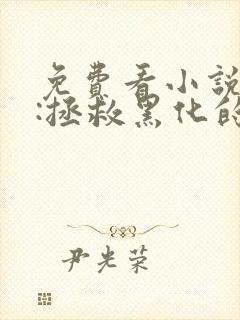 免費看小說
:拯救黑化的
尹光荣